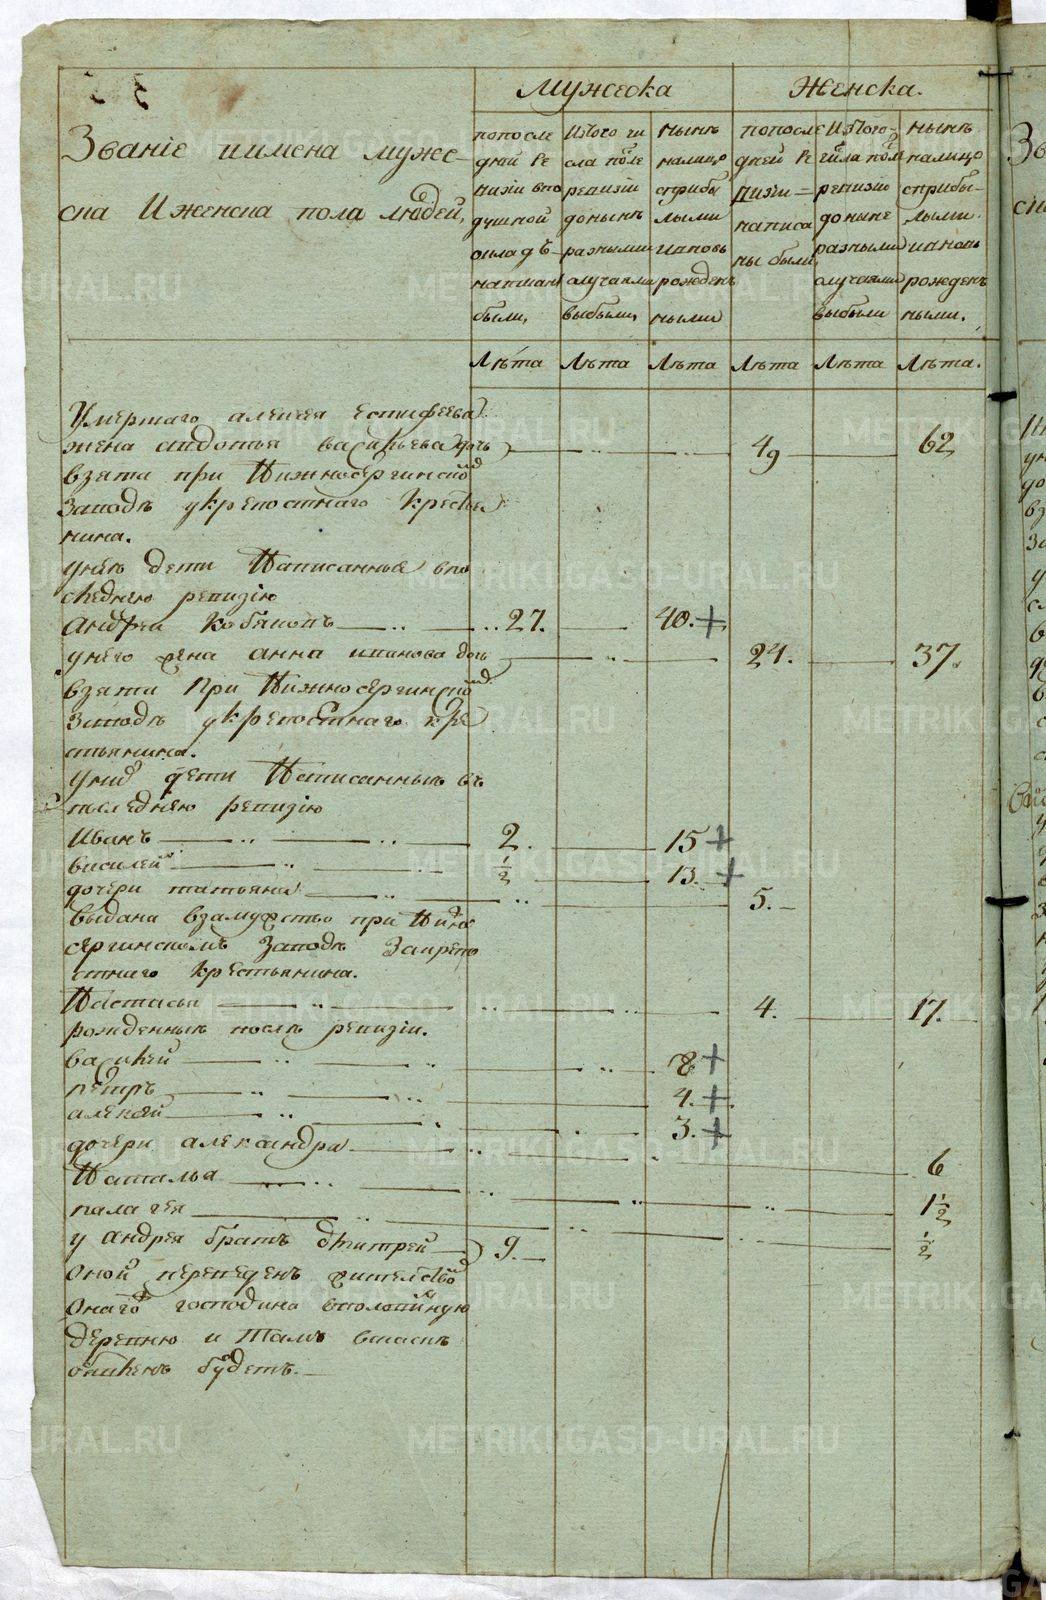 Мужеска Женска.
Званіе и имена мужес-
ска И женска пола людей,
попосле
дней ре
визіи впо
душной
окладъ
написан
были,
Изтого чи
сла после
ревизіи
донынъ
разными
случаями
выбыли,
нынъ
налицо
сприбы
лыми
ивновь
рожден
ными
попосле
дней ре
визіи
написа
ны были,
Изтого-
числа посл
ревизіи
донине
разными
случаями
выбыли
нынъ
налицо
сприбы-
лыми
ивновь
рожден
ными.
Лъта Лъта Лъта Лъта Лъта Лъта.
Умершаго алексея Естифеева
жена авдотья васильева дочь 49 62
взята при Нижносергинской
Заводъ укрепостнаго Крестья
нина.
унею дети Написанныя впо
следнею ревизію
Андреи Кобяковъ 27. 40.+
унего жена анна иванова дочь 24. 37.
взята При Нижносергинской
Заводъ укрепостнаго кре
стьянина.
унид дети Написанныя въ
последнею ревизію
Иванъ 2. 15+
василей 1/2 13.+
дочери татьяна 5.
выдана взамужство при Нижно
сергинскомъ Заводъ Закрепо
стнаго Крестьянина.
Настасья 4. 17.
рожденныя послъ ревизіи.
василей 8+
петръ 4.+
алексей 3.+
дочери александра 6
Наталья 1 1/2
палагея 1/2
у андрея братъ дмитрей 9.
Оной переведенъ жителство
Онаго господина вполовинную
деревню и Тамъ вписанъ
будетъ.
METRIKI.GASO-URAL.RU